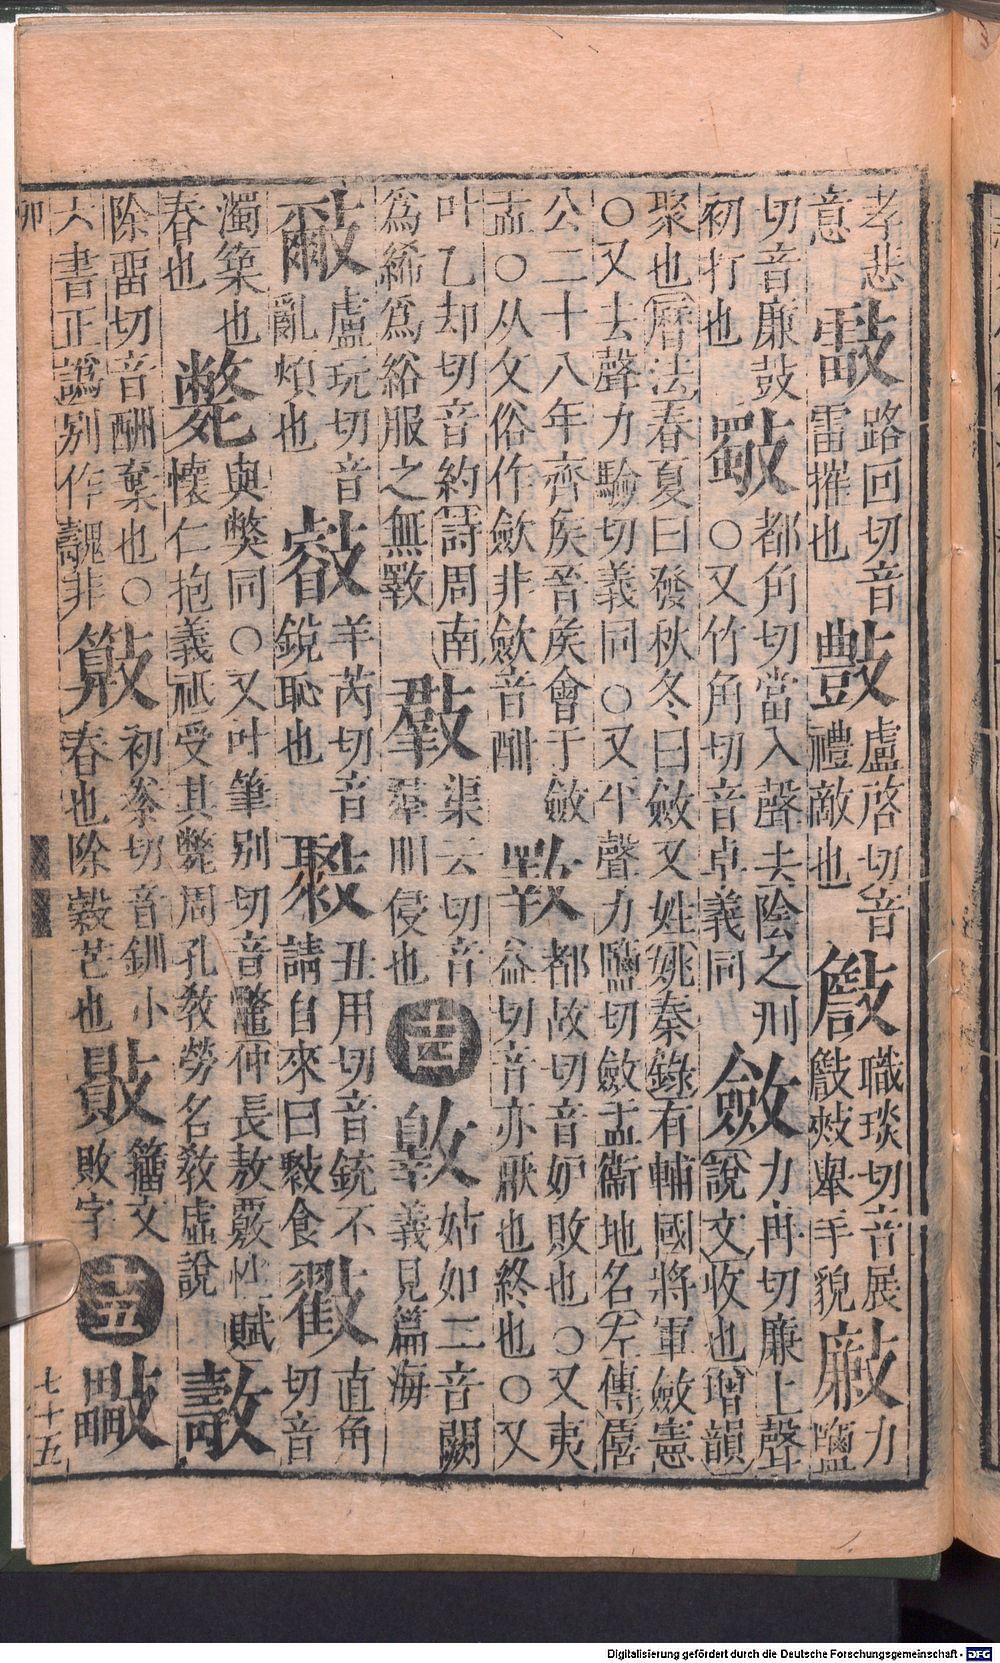 孝悲意 路回切音雷摧也 𢿃 盧啓切音禮敵也 職琰切音展舉手貌 力鹽
切音廉鼓初打也 斀 都角切當入聲去陰之刑○又竹角切音卓義同 斂 力冉切廉上聲說文收也增韻
聚也曆法春夏曰發秋冬曰斂又姓姚秦錄有輔國將軍斂憲○又去聲力驗切義同○又平聲力鹽切斂盂衞地名左傳僖
公二十八年齊矦晉矦會于斂盂○从攵俗作歛非歛音酣 斁 都故切音妒敗也○又夷益切音亦厭也終也○又
叶乙却切音約詩周南爲絺爲綌服之無斁 渠云切音羣朋侵也 十四 姑如二音闕義見篇海
盧玩切音亂煩也 羊芮切音銳恥也 丑用切音銃不請自來曰食 直角切音
濁築也舂也 斃 與獘同○又叶筆別切音鼈仲長敖覈性賦懷仁抱義祇受其斃周孔敎勞名敎虛說
除畱切音酬棄也○六書正譌別作魗非 初豢切音釧小舂也除穀芒也 贁 籀文敗字 十五
卯 七十五
Digitalisierung gefördert durch die Deutsche Forschungsgemeinschaft - DFG